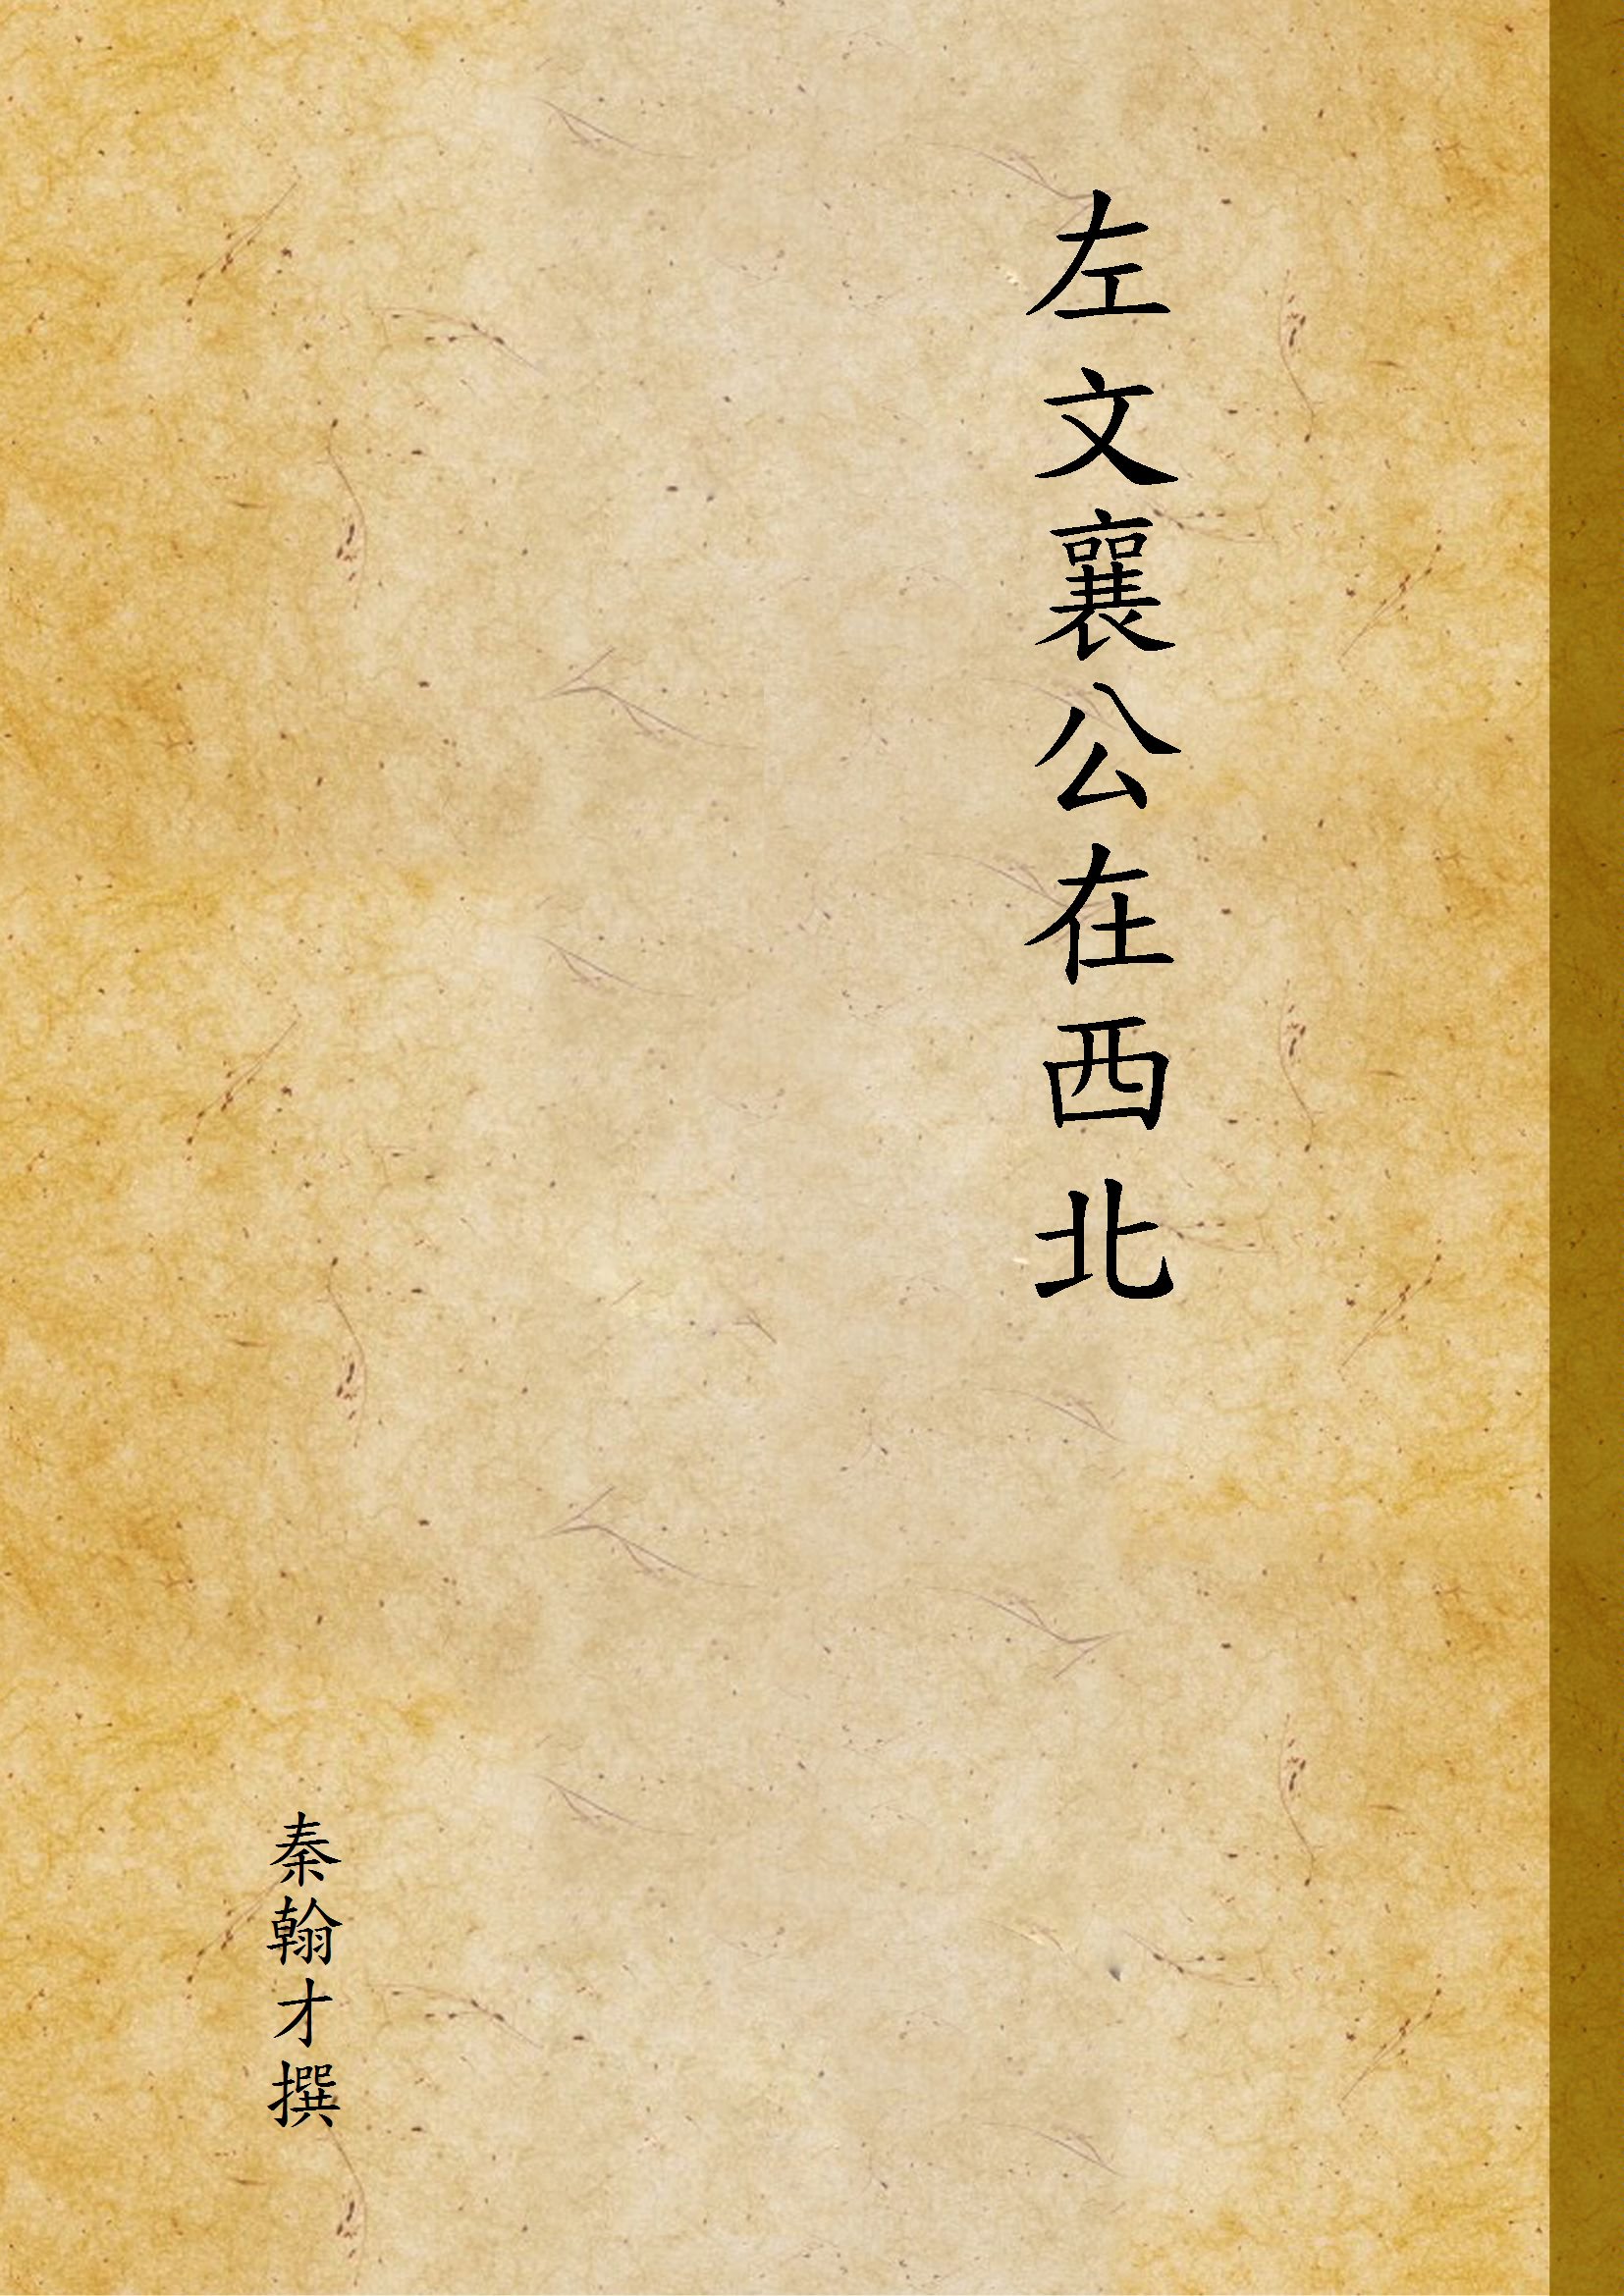 左文襄公在西北
秦翰才撰